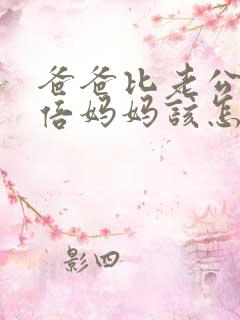 爸爸比老公
倍妈妈該怎
影四